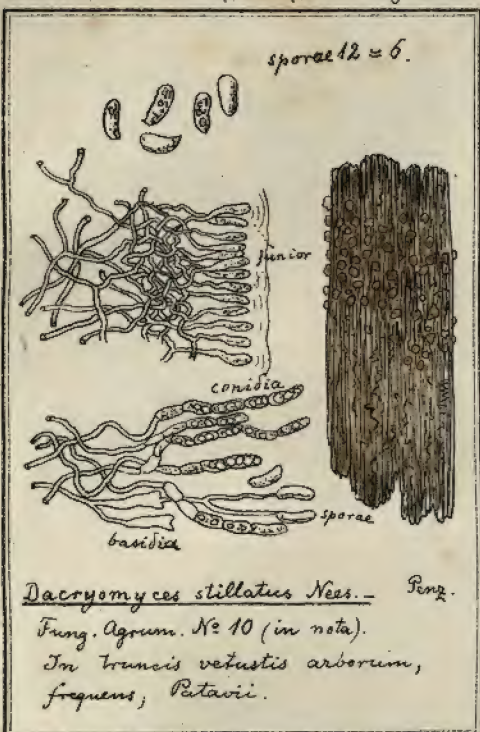 sporae 12 = 6.
junior
conidia
sporae
basidia
Dacryomyces stillatus Nees. _ Penz.
Fung. Agrum. Nº 10 (in nota).
In truncis vetustis arborum,
frequens, Patavii.